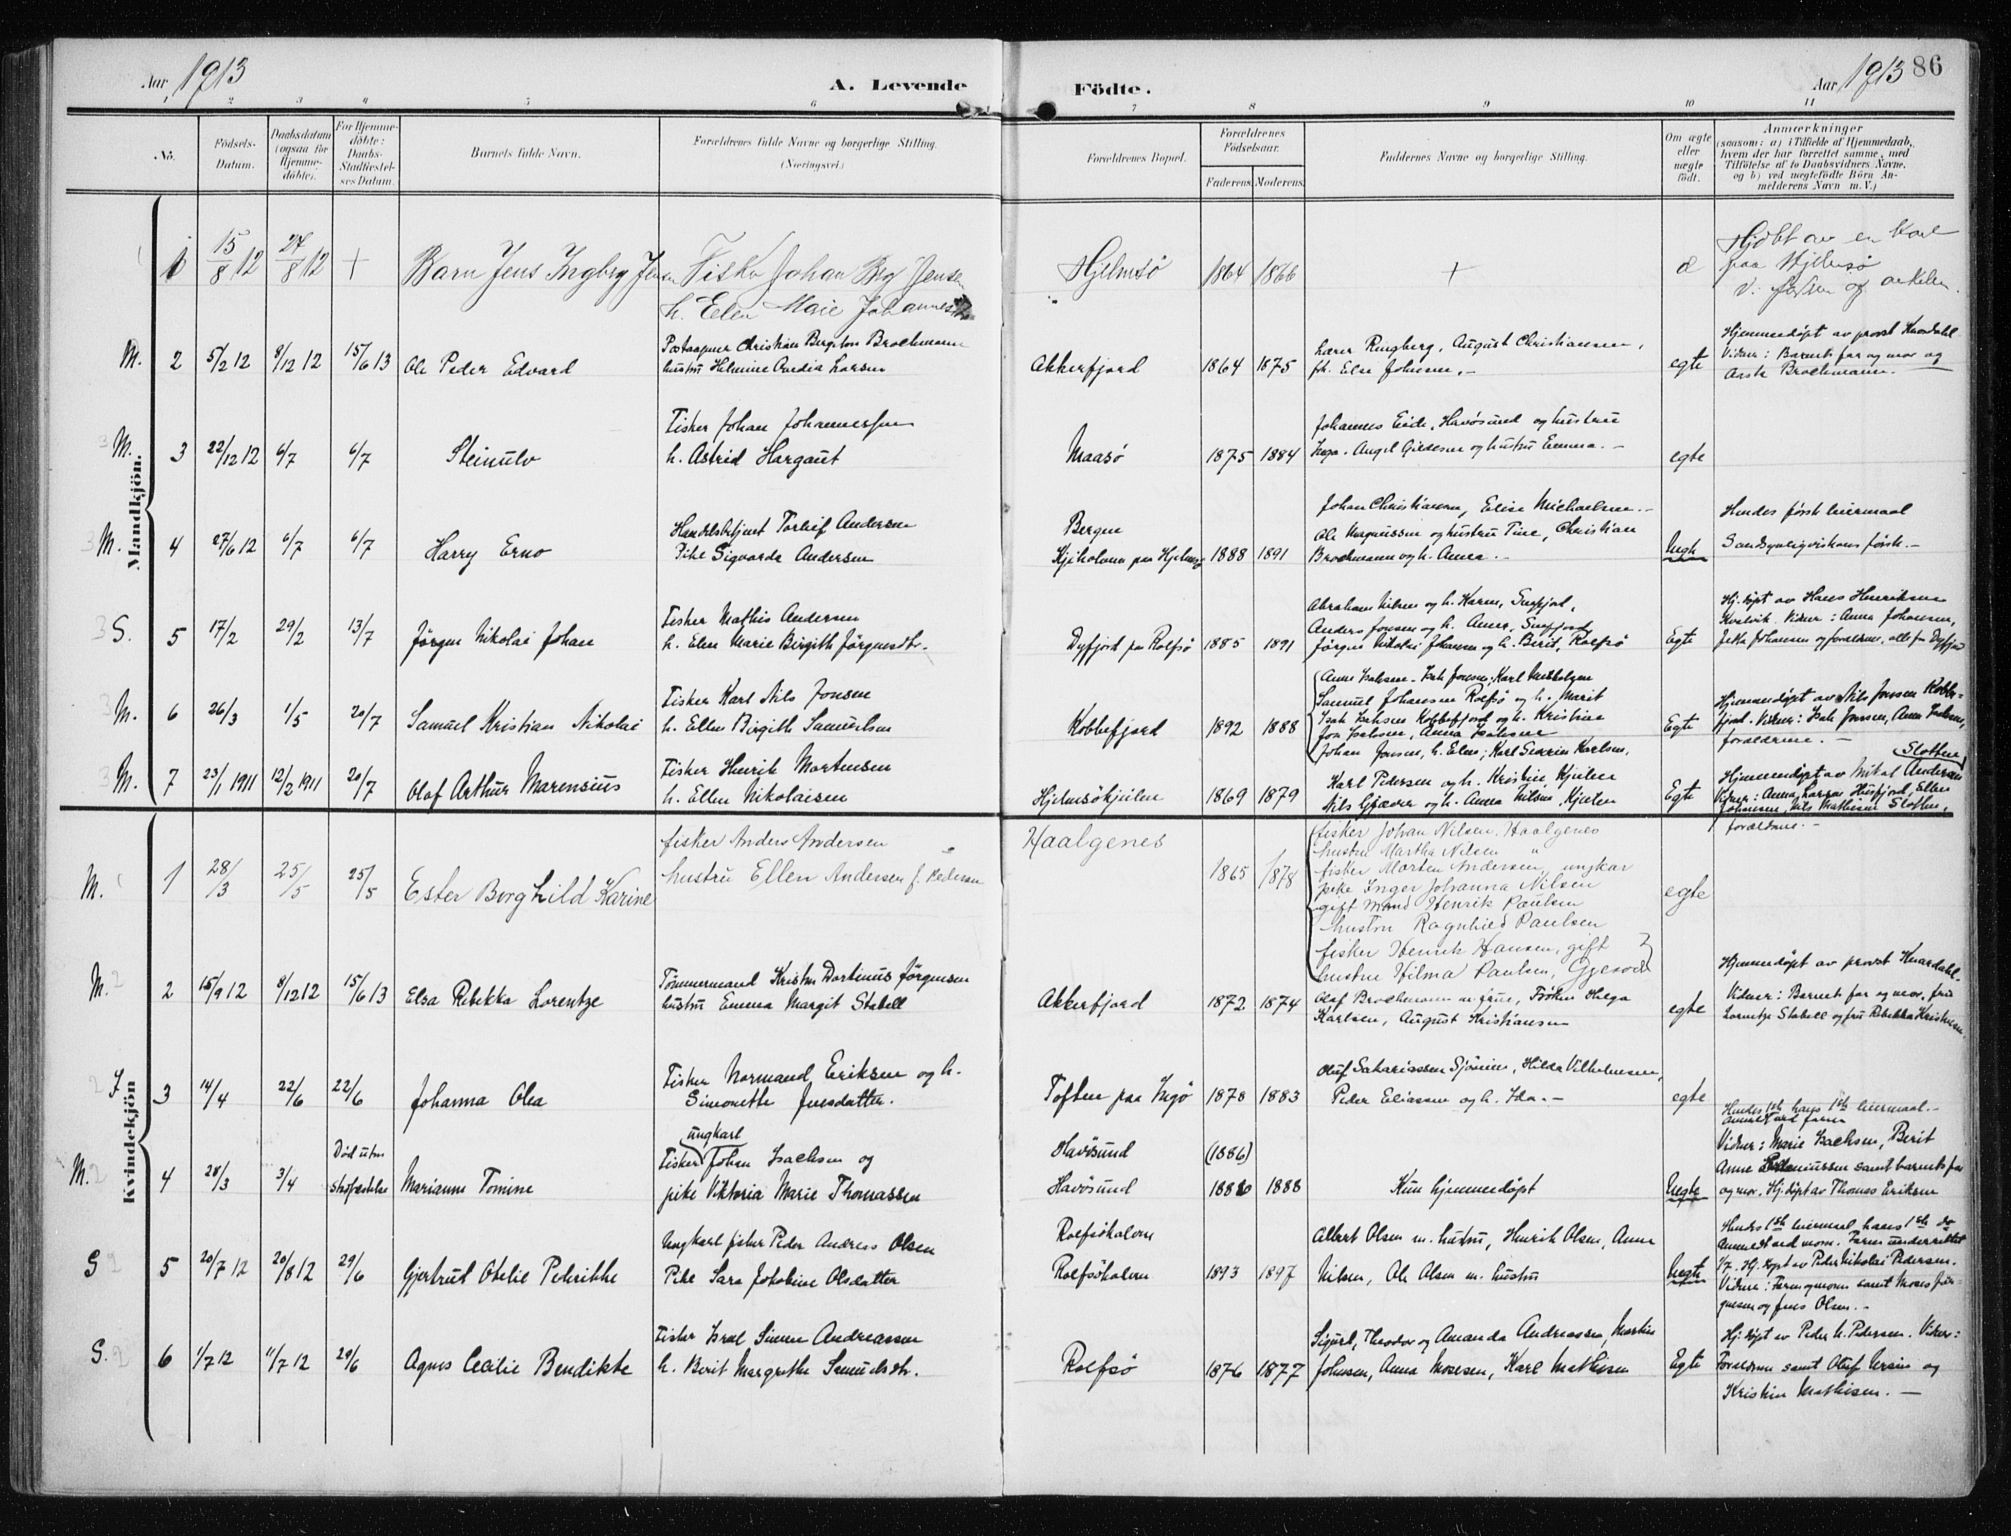 Aar 1913
A. Levende
Födte.
Aar 1913
86
1 2 3 4 5 6 7 8 9 10 11
No.
Födsels-
Datum.
Daabsdatum
(ogsaa for
Hjemme-
döbte).
For Hjemme-
döbte:
Daabs-
Stadfæstel-
ses Datum.
Barnets fulde Navn.
Forældrenes fulde Navne og borgerlige Stilling.
(Næringsvei.)
Forældrenes Bopæl.
Forældrenes
Födselsaar.
Faderens. Moderens.
Faddernes Navne og borgerlige Stilling.
Om ægte
eller
uægte
födt.
Anmærkninger
(saasom: a) i Tilfælde af Hjemmedaab,
hvem der har forrettet samme, med
Tilföielse af to Daabsvidners Navne,
og b) ved uægtefödte Börn An-
melderens Navn m. V.)
Mandkjön.
1 15/8 12 27/8 12 + Barn Jens Ingberg
Johan
h. Elen Marie
Hjelmsö 1864 1866 +
av en
paa Hjelmsö
M. 2 5/2 12 8/12 12 15/6 13 Ole Peder Edvard
Christian Bergiton Brochmann
hustru Helmine Ovedia Larsen
Akkerfjord 1864 1875
Lærer Ringberg, August Christiansen,
frk. Else Johnsen. -
egte
Hjemmedøpt av provst Kvardahl
Vidner: Barnets far og mor og
Brochmann.
M. 3 22/12 12 6/7 6/7 Steinulv
Fisker Johan Johannessen
h. Astrid Hargaut
Maasö 1875 1884
Johannes Eide, Havösund og hustru
Inga. Angel Gildesen og hustru Emma. -
egte
M. 4 27/6 12 6/7 6/7 Harry Erno
Handelsbetjent Torleif Andersen
Pike Sigvarda Andersen
Bergen
Kjeholmen paa Hjelmsö 1888 1891
Johan Christiansen, Elise Michaelsen. -
Ole Magnussen og hustru Tine, Christian
Brochmann og h. Anna. -
Uegte
Hendes første leiermaal
Sandsynligvis hans første. -
S. 5 17/2 29/2 13/7 Jörgen Nikolai Johan
Fisker Mathis Andersen
h. Elen Marie Birgith Jörgensdtr.
Dyfjord paa Rolfsö 1885 1891
Abraham Nilsen og h. Karen, Snefjord,
Anders Jonsen og h. Anna, Snefjord
Jörgen Nikolai Johansen og h. Berit, Rolfsö
Egte
Hj. döpt av Hans Henriksen
Kvalvik. Vidner: Anna Johansen,
Johansen og forældrene, alle fra Dyfjord
M. 6 26/3 1/5 20/7 Samuel Kristian Nikolai
Fisker Karl Nils Jonsen
h. Ellen Birgith Samuelsen
Kobbefjord 1892 1888
Samuel Johansen Rolfsö og h. Marit
Isak Isaksen Kobbefjord og h. Kristine
Jon Isaksen, Anna Isaksen
Johan Jonsen, h. Elen; Karl Severin Karlsen.
Egte
Hjemmedöpt av Nils Jonsen Kobbe-
fjord. Vidner: Isak Jonsen, Anna Isaksen,
forældrene. -
M. 7 23/1 1911 12/2 1911 20/7 Olaf Arthur Marensius
Fisker Henrik Mortensen
h. Ellen Nikolaisen
Hjelmsökjeilen 1869 1879
Karl Pedersen og h. Kristine, Kjeilen
Nils Gjæver og h. Anna Nilsen, Kjeilen
Egte
Hjemmedöpt av Mikal Andersen
Slotten
Vidner: Anna Larsen Husfjord, Ellen
Johansen, Nils Mathisen Slotten,
forældrene. -
Kvindekjön
M. 1 28/3 25/5 25/5 Ester Borghild Karine
fisker Anders Andersen
hustru Ellen Andersen f. Pedersen
Haalgenes 1865 1878
fisker Johan Nilsen, Haalgenes
hustru Martha Nilsen "
fisker Morten Andersen, ungkar
pike Inger Johanna Nilsen
gift mand Henrik Paulsen
hustru Ragnhild Paulsen
fisker Henrik Hansen, gift
hustru Hilma Paulsen, Gjesvær
egte
M. 2 15/9 12 8/12 12 15/6 13 Elsa Rebekka Lorentze
Tömmermand Kristen Dortinus Jörgensen
hustru Emma Margit Stabell
Akkerfjord 1872 1874
Olaf Brochmann m. frue, Fröken Helga
Karlsen, August Kristiansen
egte
Hjemmedöpt av provst Kvardahl
Vidner: Barnets far og mor, fru
Lorentze Stabell og fru Rebekka Kristensen
J. 3 14/4 22/6 22/6 Johanna Olea
Fisker Normand Eriksen og h.
Simonette Jensdatter.
Toften paa Ingö 1878 1883
Oluf Sakariassen Sjönins, Hilda Vilhelmsen,
Peder Eliassen og h. Ida. -
egte
M. 4 28/3 3/4 Död uten
stadfæstelse Marianne Tomine
ungkarl
Fisker Johan Isachsen og
pike Viktoria Marie Thomassen
Havösund (1886)
Havösund 1886 1888
Kun hjemmedöpt
Uegte
Hendes 1ste hans 1ste leiermaal. -
Anmeldt ved faren
Vidner: Marie Isachsen, Berit
Anne samt barnets far
og mor. Hj. döpt av Thomas Eriksen
S 5 20/7 12 20/8 12 29/6 Gjertrud Otelie Pederikke
Ungkarl fisker Peder Andreas Olsen
Pike Sara Jakobine Olsdatter
Rolfsöhalvön
Rolfsöhalvön 1893 1897
Albert Olsen m. hustru, Henrik Olsen, Anna
Nilsen, Ole Olsen m. hustru
Uegte
Hendes 1ste leiermaal hans 1ste do
Anmeldt ved moren. Faren underrettet
Hj. döpt av Peder Nikolai Pedersen.
Vidner: Faren og moren samt Moses Jör-
gensen og Jens Olsen. -
S. 6 1/7 12 11/7 12 29/6 Agnes Cecilie Bendikte
Fisker Israel Simon Andreassen
h. Berit Margrethe Samuelsdtr.
Rolfsö 1876 1877
Sigurd, Theodor og Amanda Andreassen, Martin
Johnsen, Anna Mosesen, Karl Mathisen
Egte
Hj. döpt av Peder N. Pedersen. Vidner:
Forældrene samt Oluf Iversen og
Kristine Mathisen. -